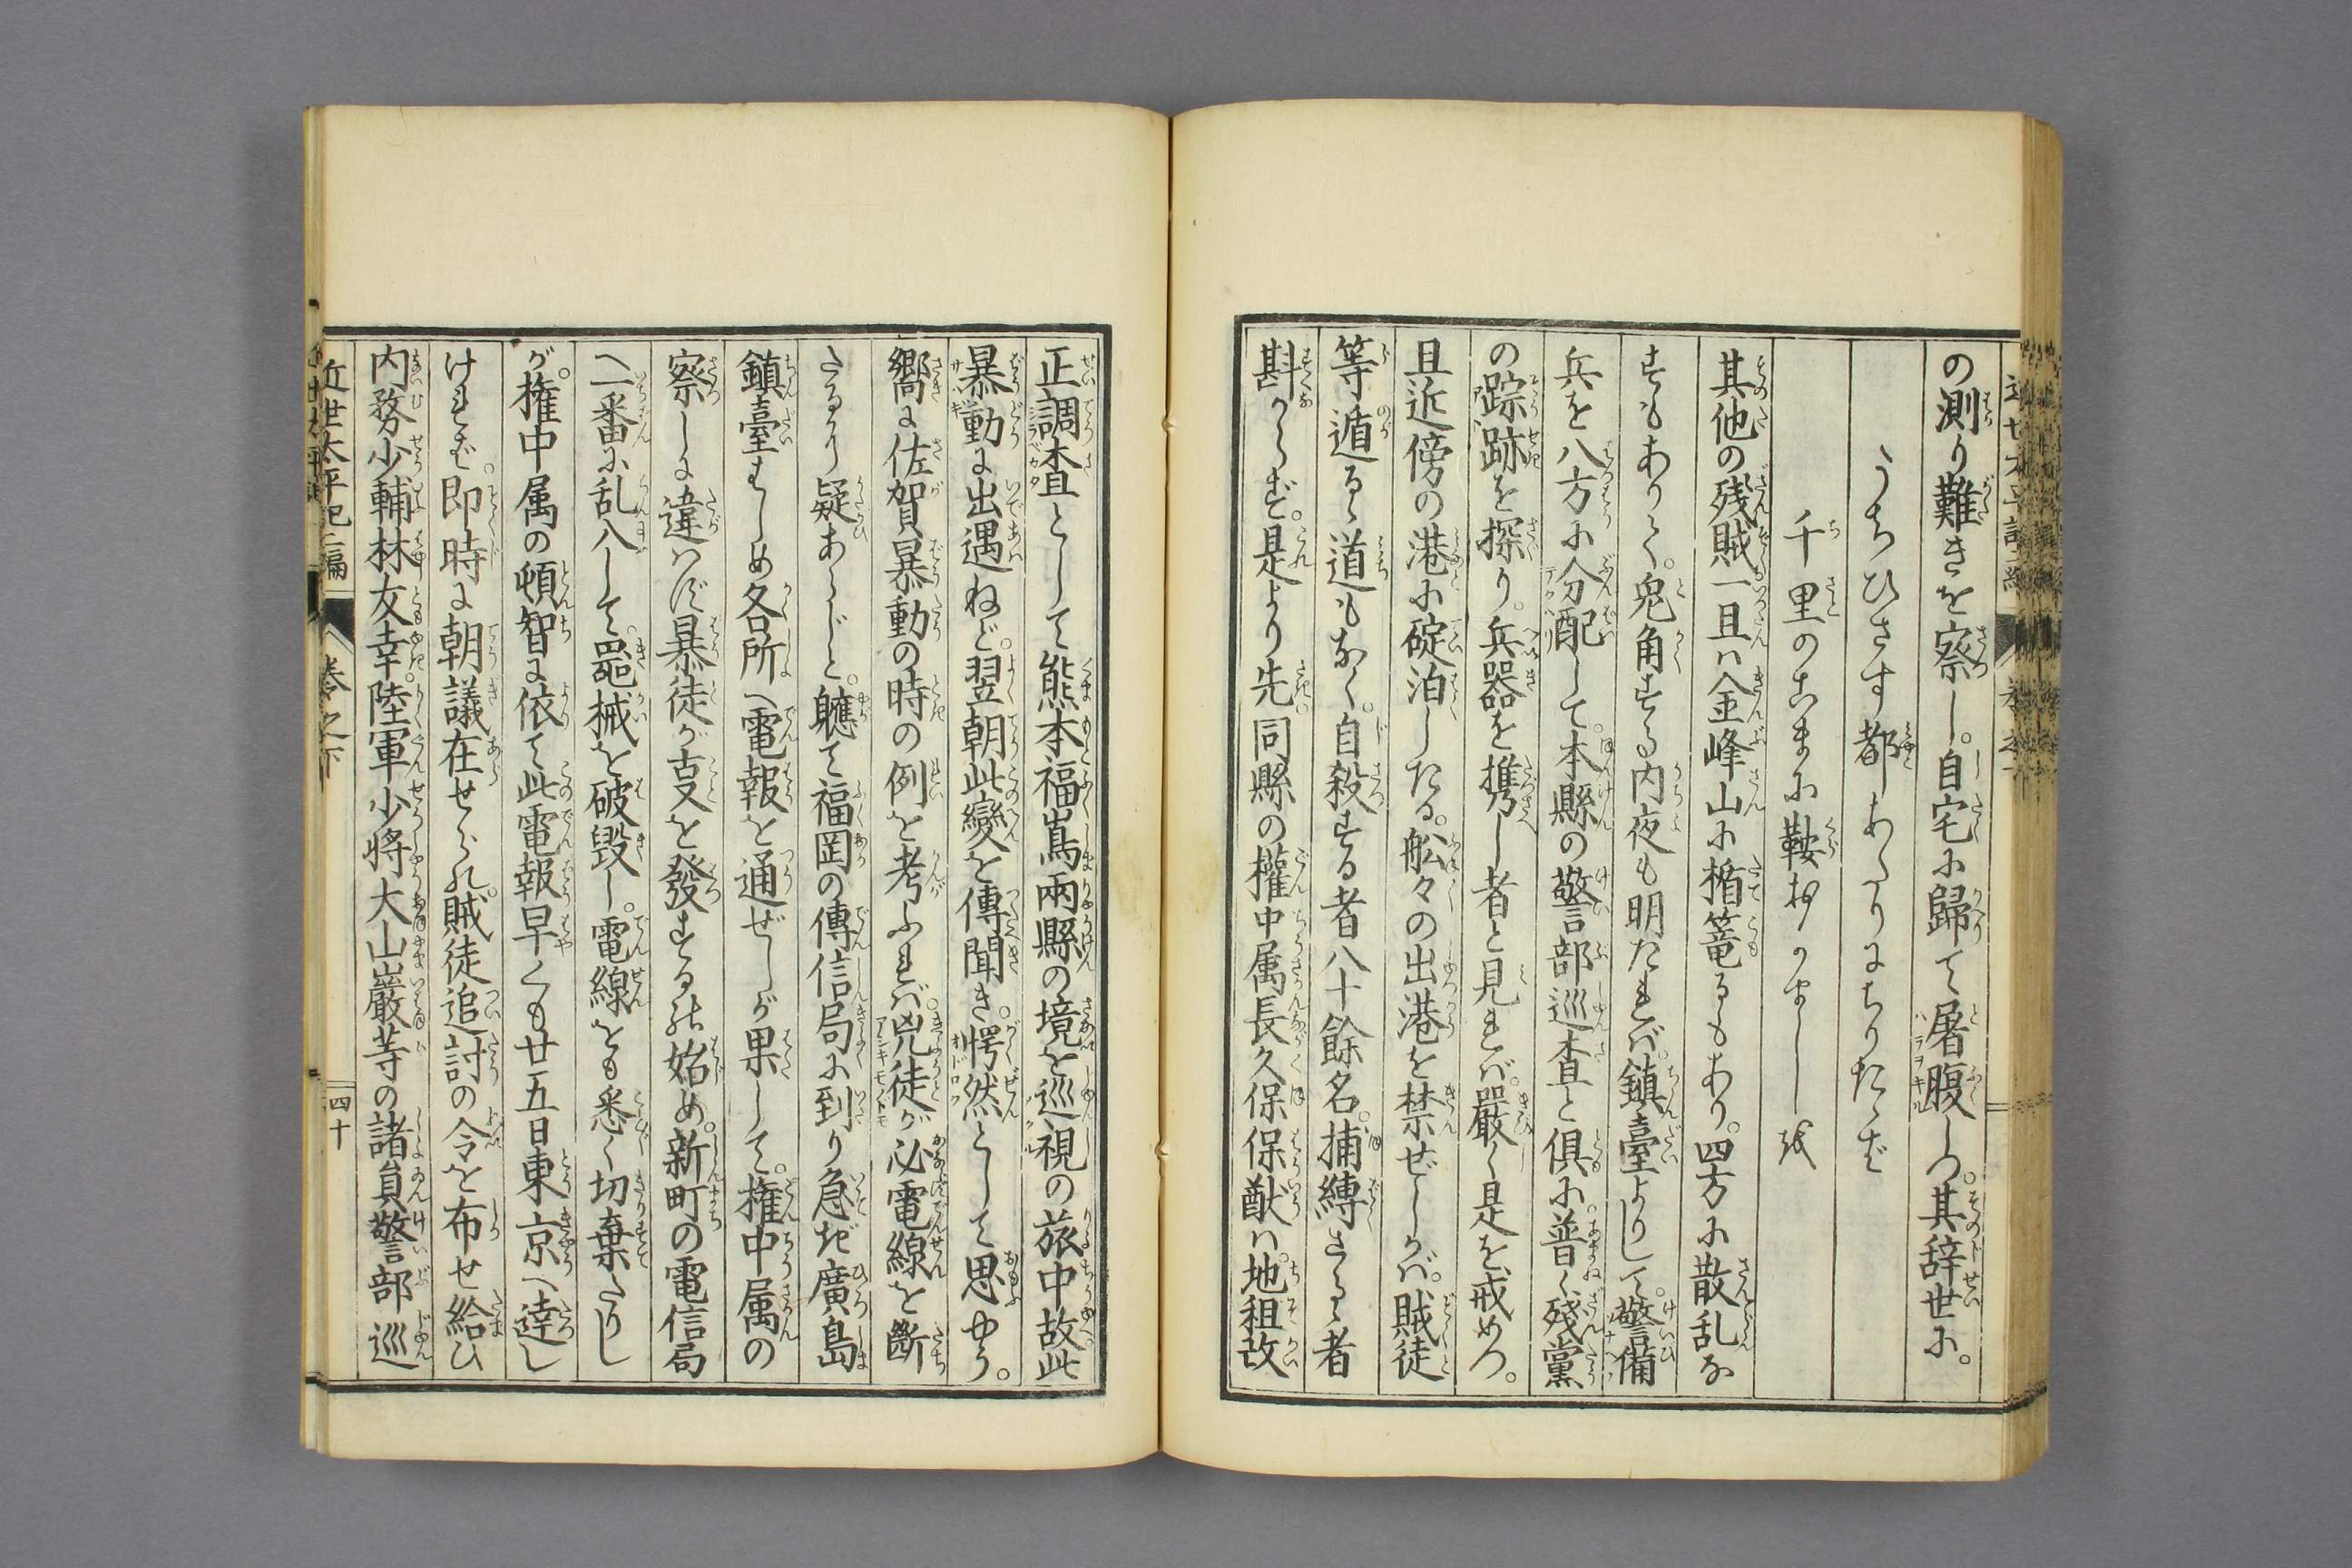 の測り難きを察し。自宅に歸て屠腹しつ。其辞世に。
うちひさす都あたりにちりたゝば
千里のこまに鞍おかましを
其他の残賊一旦は金峰山に楯篭るもあり。四方に散乱な
すもありて。兎角する内夜も明たれば。鎮臺よりして。警備
兵を八方に分配して。本縣の警部巡査と倶に。普く残黨
の踪跡を探り。兵器を携し者と見れば。嚴く是を戒めつ。
且近傍の港に碇泊したる。舩々の出港を禁ぜしかば。賊徒
等遁るゝ道もなく。自殺する者八十餘名。捕縛さるゝ者
尠からず。是より先同縣の權中属長久保保猷は。地租改
正調査として熊本福嶌兩縣の境を巡視の旅中故此
暴動に出遇ねど。翌朝此變を傳聞き。愕然として思ゆう。
嚮に佐賀暴動の時の例を考ふれば。兇徒が必電線を斷
たるり疑あらじと。軈て福岡の傳信局に到り急ぎ廣島
鎮臺はじめ各所へ電報を通ぜしが果して。権中属の
察しに違はず暴徒が叓を發する始め。新町の電信局
へ一番に乱入して。噐械を破毀し。電線をも悉く切棄たりし
が。権中属の頓智に依て此電報早くも廿五日東京へ達し
ければ。即時に朝議在せられ。賊徒追討の令を布せ給ひ
内務少輔林友幸。陸軍少将大山巌等の諸員警部巡
近世太平記二編　巻之下　四十